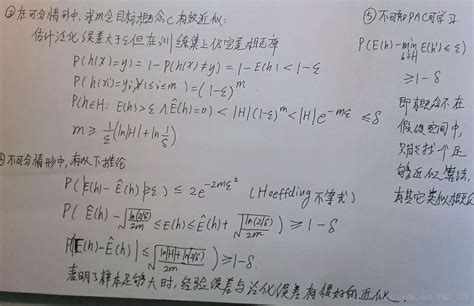 ③在可分情形中，求m令目标概念c有效近似：
估计泛化误差大于ε但在训练集上仍完美概率
P(h(x)=y) = 1-P(h(x)≠y) = 1-E(h) < 1-ε
P(h(xi)=yi, ∀1≤i≤m) = (1-ε)^m
P(h∈H: E(h)>ε ∧ Ê(h)=0) < |H|(1-ε)^m < |H|e^-mε ≤ δ
m ≥ 1/ε (ln|H| + ln 1/δ)
不可分情形中，有以下推论
P(|E(h) - Ê(h)| ≥ ε) ≤ 2e^-2mε² (Hoeffding不等式)
P(Ê(h) - √(ln(2/δ)/2m) ≤ E(h) ≤ Ê(h) + √(ln(2/δ)/2m)) ≥ 1-δ
P(|E(h) - Ê(h)| ≤ √((ln|H| + ln(2/δ))/2m)) ≥ 1-δ.
表明了样本足够大时，经验误差与泛化误差有很好的近似
⑤不可知PAC可学习
P(E(h) - min E(h') ≤ ε)
h'∈H
≥ 1-δ
即概念不在
假设空间中，
只能找个足
够近似算法，
有其它类似概念